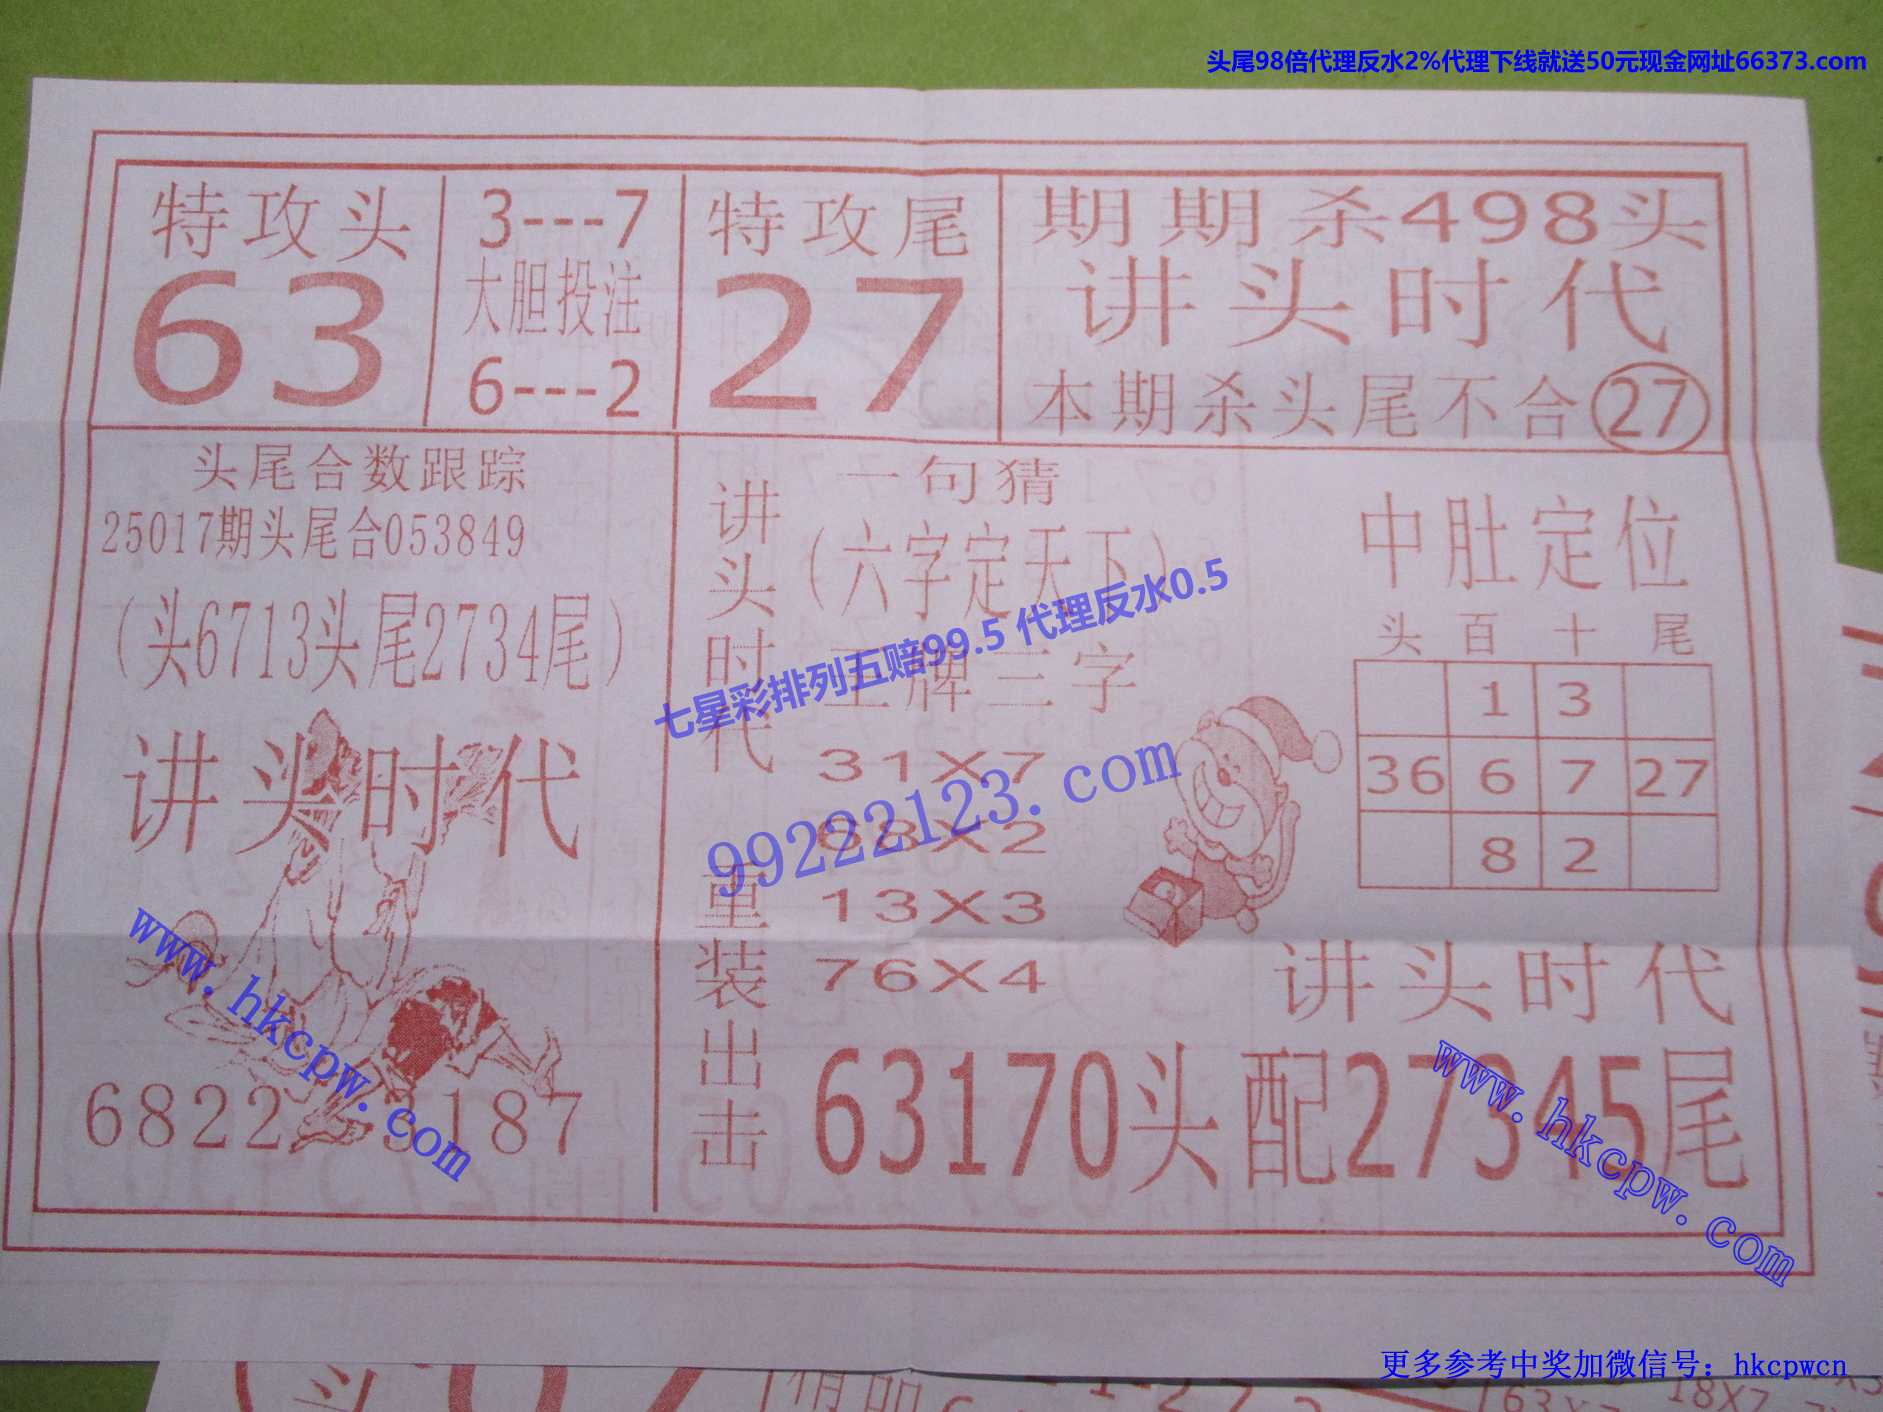 头尾98倍代理反水2%代理下线就送50元现金网址66373.com
特攻头
63
3---7
大胆投注
6---2
特攻尾
27
期期杀498头
讲头时代
本期杀头尾不合27
头尾合数跟踪
25017期头尾合053849
(头6713头尾2734尾)
讲头时代
6822
3187
讲头时代重装出击
一句猜
(六字定天下)
王牌三字
31X7
68X2
13X3
76X4
七星彩排列五赔99.5 代理反水0.5
99222123.com
中肚定位
头 百 十 尾
1 3
36 6 7 27
8 2
讲头时代
63170头配27345尾
www.hkcpw.com
www.hkcpw.com
更多参考中奖加微信号：hkcpwcn
头
精品
63X7
18X7